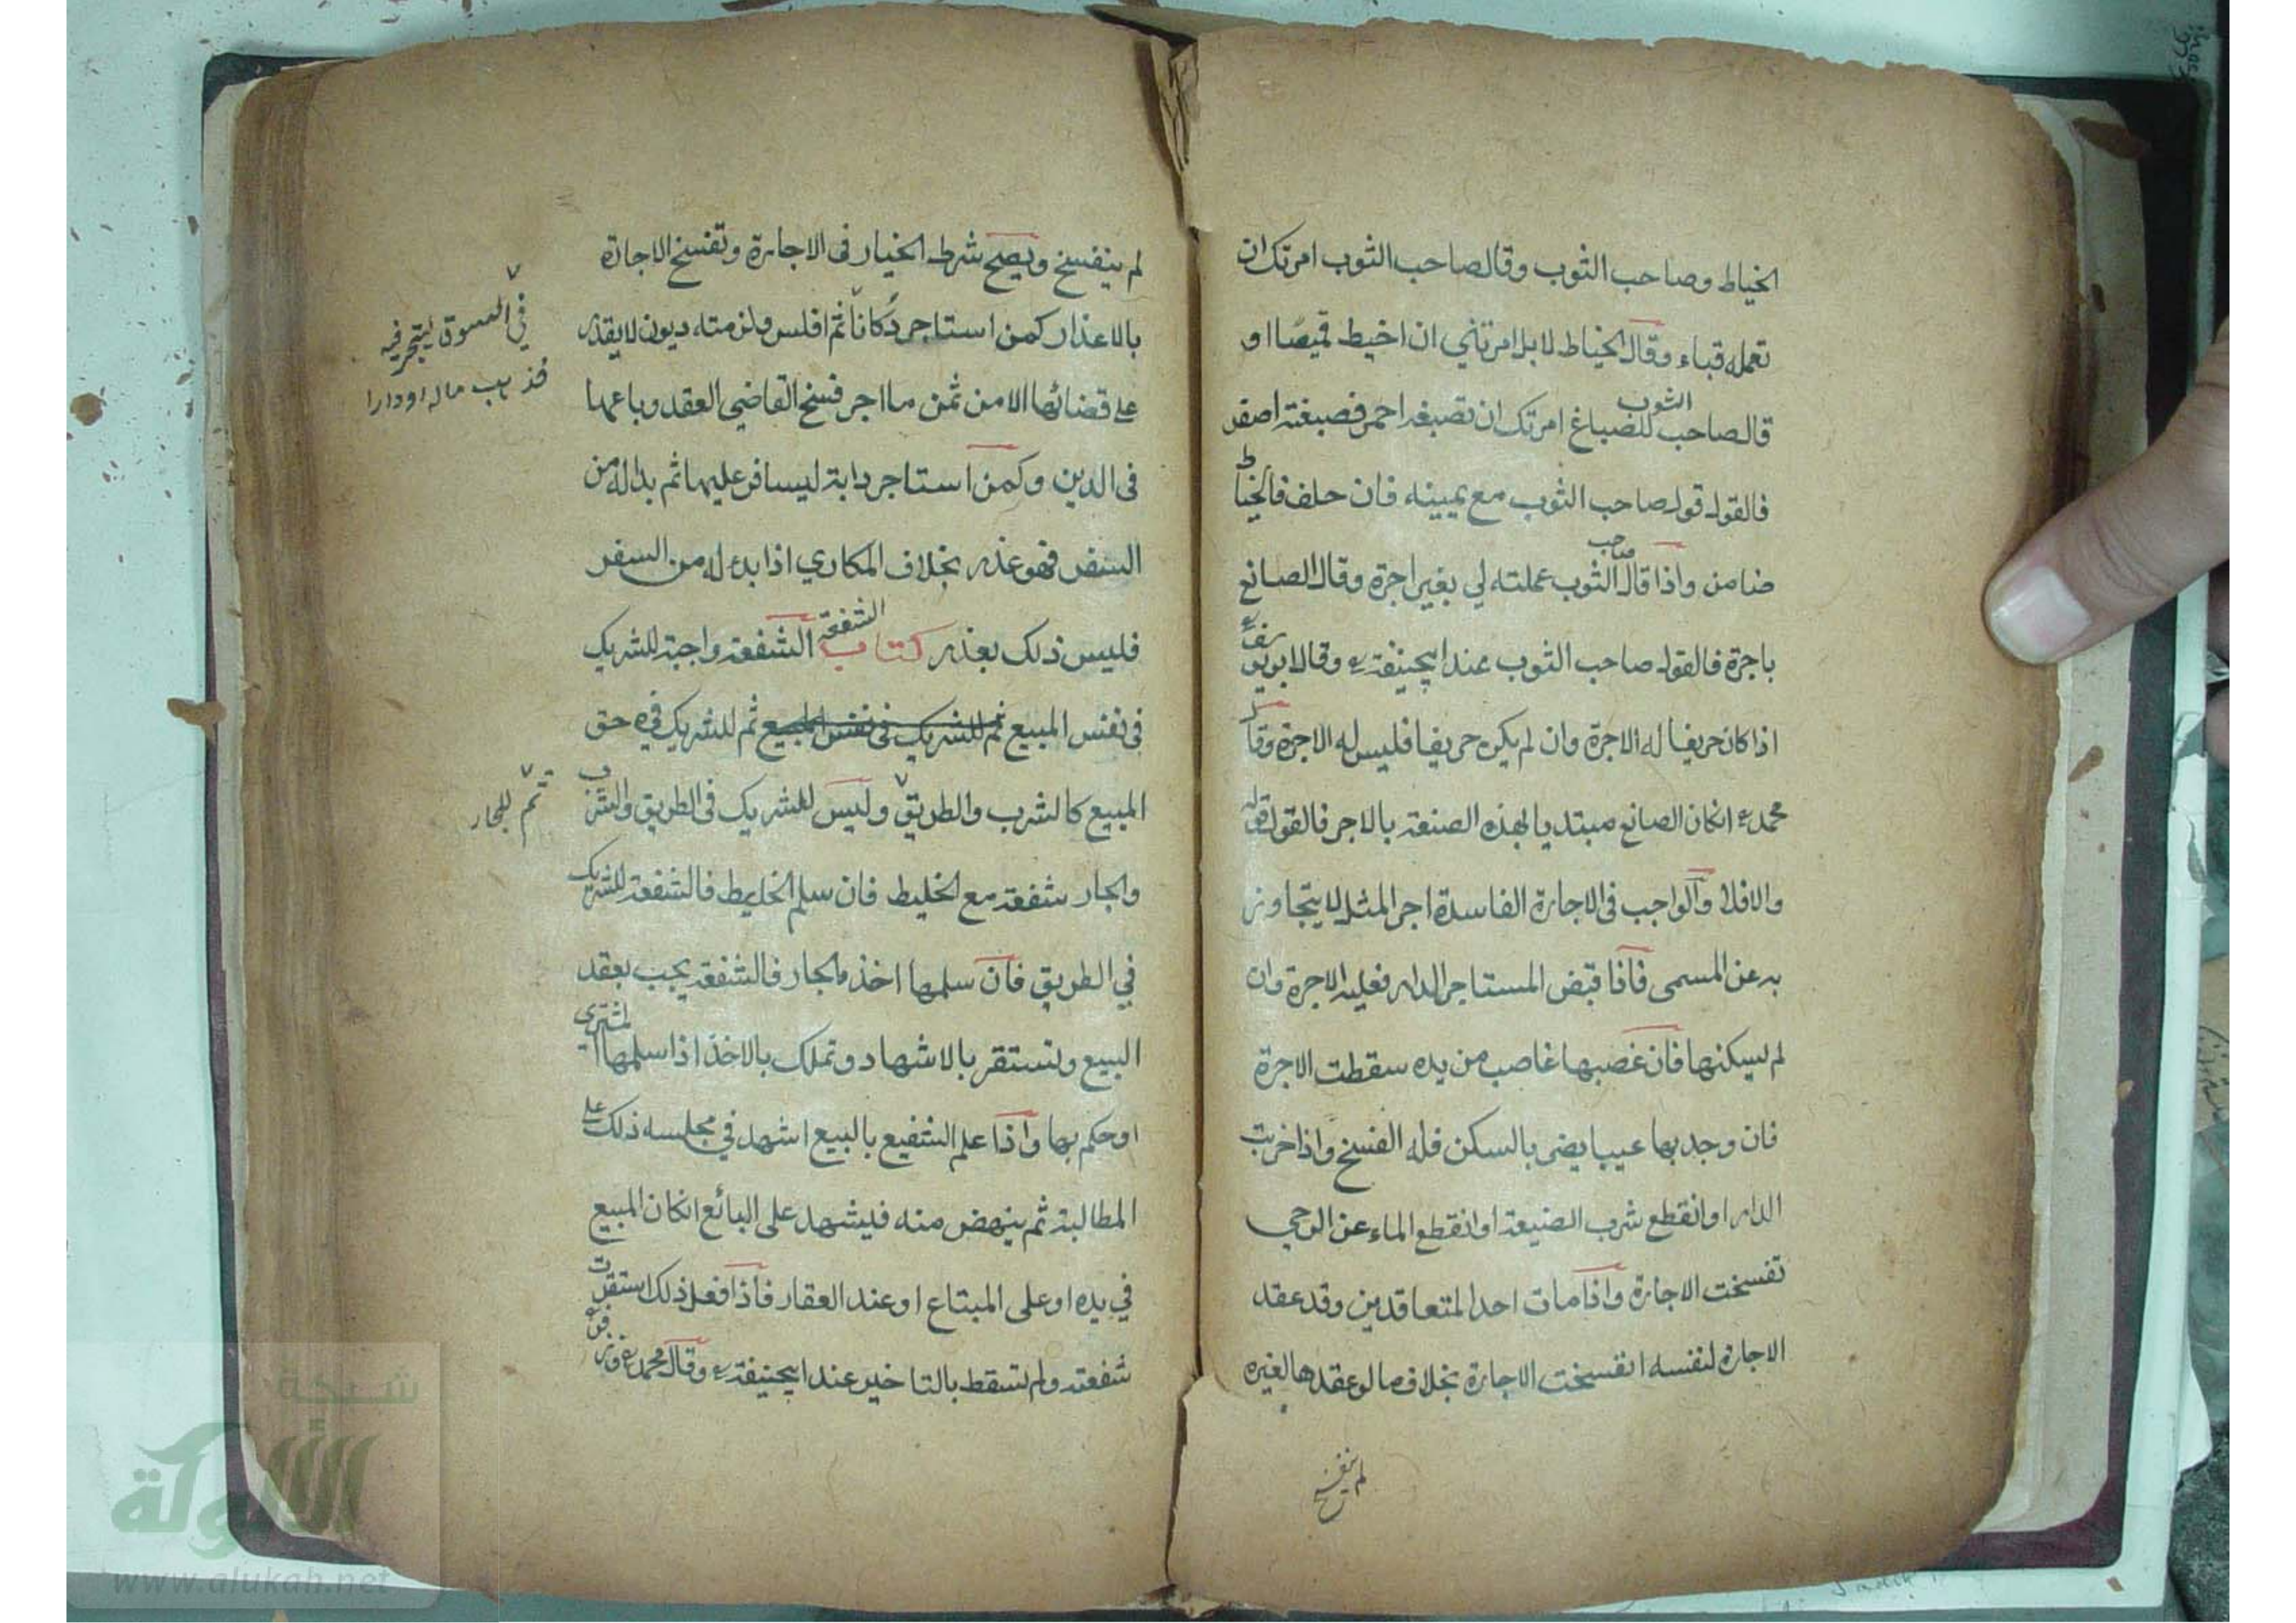 الخياط وصاحب الثوب وقال صاحب الثوب امرتك ان
تعمله قباء وقال الخياط لا بل امرتني ان اخيط قميصا او
قال صاحب الثوب للصباغ امرتك ان تصبغه احمر فصبغته اصفر
فالقول قول صاحب الثوب مع يمينه فان حلف فالخياط
ضامن واذا قال صاحب الثوب عملته لي بغير اجرة وقال الصانع
باجرة فالقول صاحب الثوب عند ابيحنيفة رح وقال ابويوسف رح
اذا كان حريفا له الاجرة وان لم يكن حريفا فليس له الاجرة وقال
محمد رح انكان الصانع مبتديا بهذه الصنعة بالاجر فالقول قوله
والا فلا والواجب فى الاجارة الفاسدة اجر المثل لا يتجاوز
به عن المسمى فاذا قبض المستاجر الدار فعليه الاجرة وان
لم يسكنها فان غصبها غاصب من يده سقطت الاجرة
فان وجد بها عيبا يضر بالسكن فله الفسخ واذا خربت
الدار او انقطع شرب الضيعة او انقطع الماء عن الرحي
تفسخت الاجارة واذا مات احد المتعاقدين وقد عقد
الاجارة لنفسه انفسخت الاجارة بخلاف ما لو عقدها لغيره
لم ينفسخ
لم ينفسخ ويصح شرط الخيار فى الاجارة وتفسخ الاجارة
بالاعذار كمن استاجر دكانا ثم افلس ولزمته ديون لا يقدر
في السوق ليتجر فيه
فذهب ماله او دارا
على قضائها الا من ثمن ما اجر فسخ القاضي العقد وباعها
فى الدين وكمن استاجر دابة ليسافر عليها ثم بدا له من
السفر فهو عذر بخلاف المكاري اذا بدء له من السفر
فليس ذلك بعذر كتاب الشفعة الشفعة واجبة للشريك
فى نفس المبيع ثم للشريك فى نفس المبيع ثم للشريك في حق
المبيع كالشرب والطريق وليس للشريك فى الطريق والشرب
ثم للجار
والجار شفعة مع الخليط فان سلم الخليط فالشفعة للشريك
في الطريق فان سلمها اخذه الجار فالشفعة يجب بعقد
البيع وتستقر بالاشهاد وتملك بالاخذ اذا سلمها المشتري
او حكم بها واذا علم الشفيع بالبيع اشهد في مجلسه ذلك على
المطالبة ثم ينهض منه فيشهد على البائع انكان المبيع
في يده او على المبتاع او عند العقار فاذا فعل ذلك استقرت
شفعته ولم تسقط بالتاخير عند ابيحنيفة رح وقال محمد رح وزفر
شبكة
الألوكة
www.alukah.net